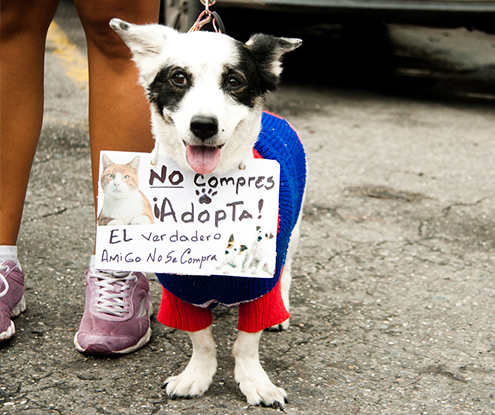 No Compres
¡AdopTa!
EL Verdadero
AmiGo No Se Compra